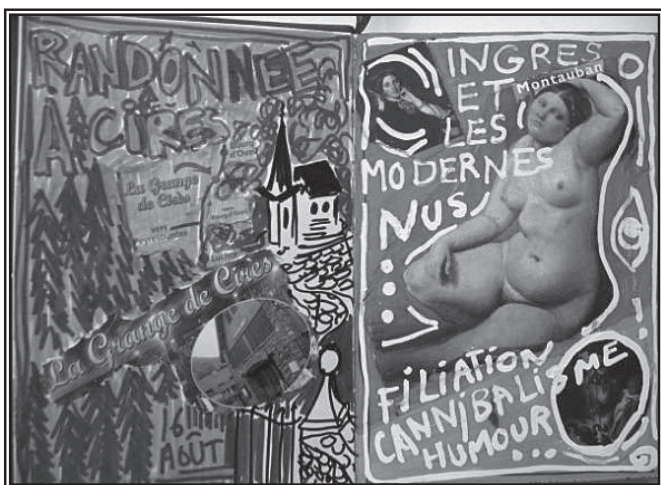 RANDONNEE
À CIRES
La Grange
de Cirès
La Grange de Cirès
16
AOÛT
INGRES
Montauban
ET
LES
MODERNES
NUS
FILIATION
CANNIBALISME
HUMOUR...